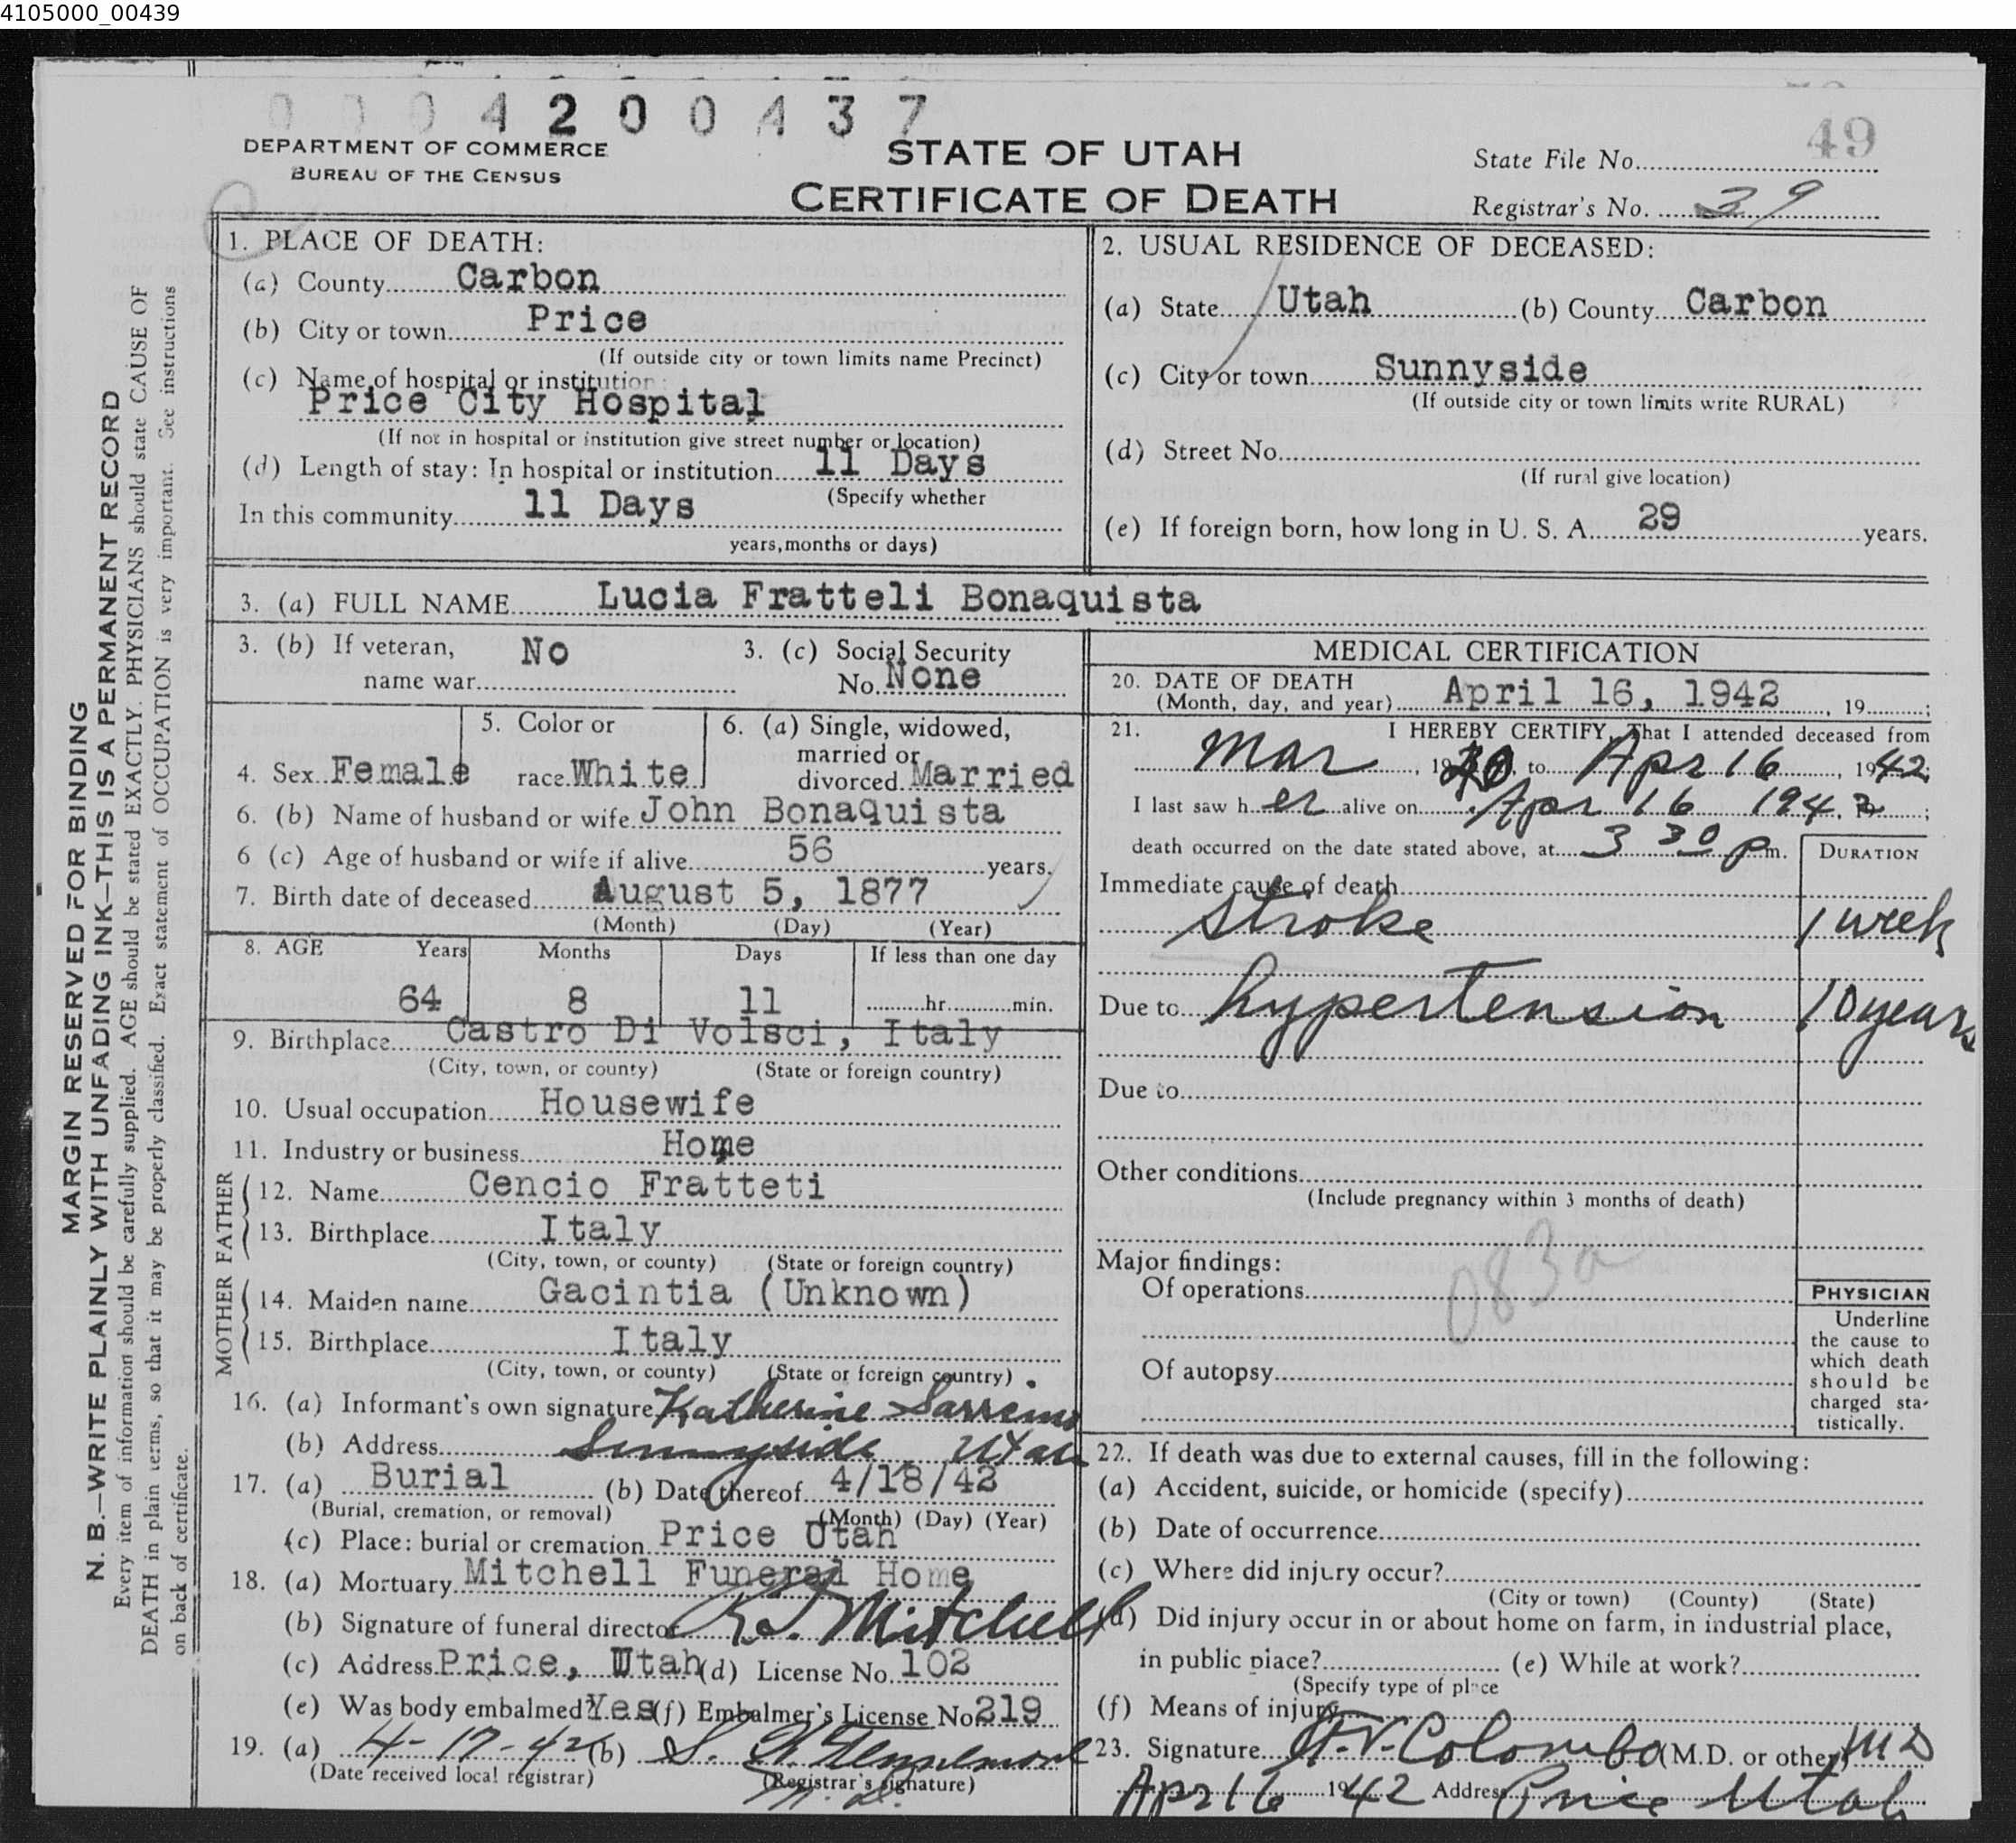 4105000_00439
0004200437
49
DEPARTMENT OF COMMERCE
BUREAU OF THE CENSUS
STATE OF UTAH
CERTIFICATE OF DEATH
State File No.
Registrar's No. 39
1. PLACE OF DEATH:
(a) County Carbon
(b) City or town Price
(If outside city or town limits name Precinct)
(c) Name of hospital or institution:
Price City Hospital
(If not in hospital or institution give street number or location)
(d) Length of stay: In hospital or institution 11 Days
(Specify whether
In this community 11 Days
years, months or days)
2. USUAL RESIDENCE OF DECEASED:
(a) State Utah (b) County Carbon
(c) City or town Sunnyside
(If outside city or town limits write RURAL)
(d) Street No.
(If rural give location)
(e) If foreign born, how long in U. S. A. 29 years.
3. (a) FULL NAME Lucia Fratteli Bonaquista
3. (b) If veteran, name war No
3. (c) Social Security No. None
4. Sex Female
5. Color or race White
6. (a) Single, widowed, married or divorced Married
6. (b) Name of husband or wife John Bonaquista
6 (c) Age of husband or wife if alive 56 years.
7. Birth date of deceased August 5, 1877
(Month) (Day) (Year)
8. AGE Years Months Days If less than one day
64 8 11 hr. min.
9. Birthplace Castro Di Volsci, Italy
(City, town, or county) (State or foreign country)
10. Usual occupation Housewife
11. Industry or business Home
FATHER
12. Name Cencio Fratteti
13. Birthplace Italy
(City, town, or county) (State or foreign country)
MOTHER
14. Maiden name Gacintia (Unknown)
15. Birthplace Italy
(City, town, or county) (State or foreign country)
16. (a) Informant's own signature Katherine
(b) Address Sunnyside Utah
17. (a) Burial (b) Date thereof 4/18/42
(Burial, cremation, or removal) (Month) (Day) (Year)
(c) Place: burial or cremation Price Utah
18. (a) Mortuary Mitchell Funeral Home
(b) Signature of funeral director Mitchell
(c) Address Price, Utah (d) License No. 102
(e) Was body embalmed? Yes (f) Embalmer's License No. 219
19. (a) 4-17-42 (b)
(Date received local registrar) (Registrar's signature)
MEDICAL CERTIFICATION
20. DATE OF DEATH
(Month, day, and year) April 16, 1942, 19 ;
21. I HEREBY CERTIFY, That I attended deceased from
Mar , 19 , to Apr 16 , 1942;
I last saw her alive on Apr 16 1942 ;
death occurred on the date stated above, at 3 30 p m.
DURATION
Immediate cause of death
stroke 1 week
Due to hypertension 10 years
Due to
Other conditions
(Include pregnancy within 3 months of death)
083a
Major findings:
Of operations
Of autopsy
PHYSICIAN
Underline
the cause to
which death
should be
charged sta-
tistically.
22. If death was due to external causes, fill in the following:
(a) Accident, suicide, or homicide (specify)
(b) Date of occurrence
(c) Where did injury occur?
(City or town) (County) (State)
(d) Did injury occur in or about home on farm, in industrial place,
in public place? (e) While at work?
(Specify type of place
(f) Means of injury
23. Signature Colombo (M.D. or other) MD
Apr 16 1942 Address Price Utah
MARGIN RESERVED FOR BINDING
N. B.—WRITE PLAINLY WITH UNFADING INK—THIS IS A PERMANENT RECORD
Every item of information should be carefully supplied. AGE should be stated EXACTLY. PHYSICIANS should state CAUSE OF
DEATH in plain terms, so that it may be properly classified. Exact statement of OCCUPATION is very important. See instructions
on back of certificate.